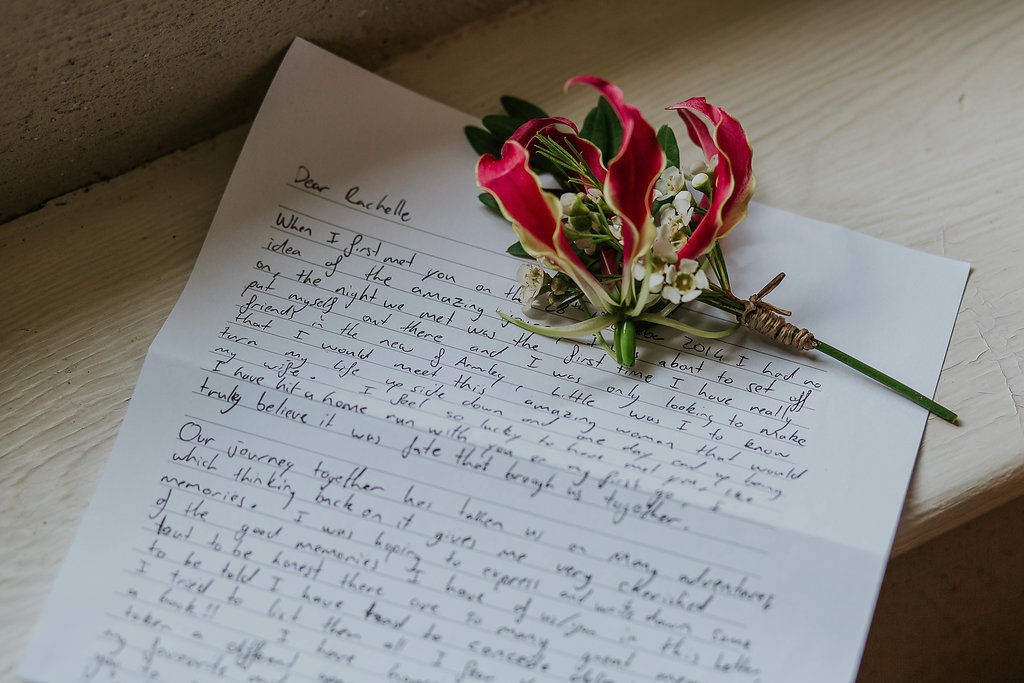 Dear Rachelle
When I first met you on the 2014 I had no
idea of the amazing was about to set off
on, the night we met was the first time I have really
put myself out there and I was only looking to make
friends in the new of Armley, little was I to know
that I would meet this amazing woman that would
turn my life upside down and one day end up being
my wife. I feel so lucky to have met you, like
I have hit a home run with you on my first go. I
truly believe it was fate that brough us together.
Our journey together has taken us on many adventures
which thinking back on it gives me very cherished
memories. I was hoping to express and write down some
of the good memories I have of us/you in this letter
but to be honest there are so many great
to be told I have to concede
I tried to list them all I fear
a book!! I have
taken a different
my favourite